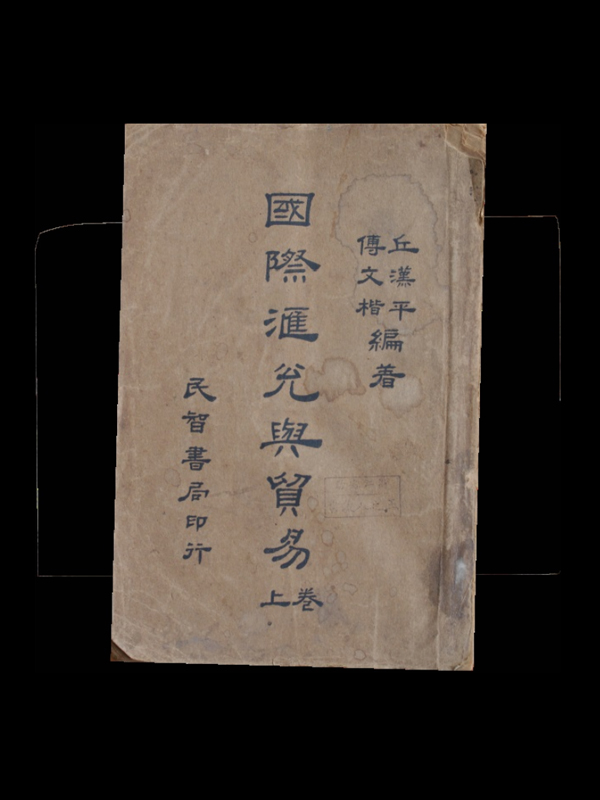 丘漢平
傅文楷
編着
國際滙兌與貿易
卷上
民智書局印行